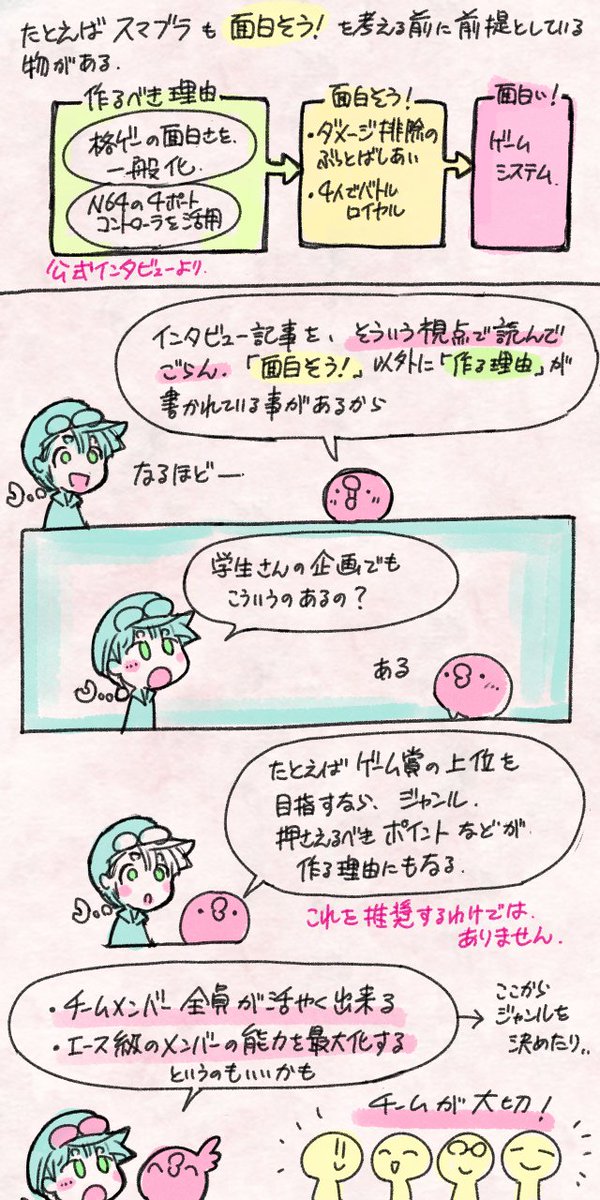 たとえば スマブラ も 面白そう! を考える前に前提としている
物がある.
作るべき理由
格ゲーの面白さを、
一般化.
N64の4ポート
コントローラを活用
面白そう!
・ダメージ排除の
ぶっとばしあい
・4人でバトル
ロイヤル
面白い!
ゲーム
システム.
公式インタビューより.
インタビュー記事を、そういう視点で読んで
ごらん.「面白そう!」以外に「作る理由」が
書かれている事があるから
なるほどー
学生さんの企画でも
こういうのあるの?
ある
たとえば ゲーム賞の上位を
目指すなら、ジャンル.
押さえるべき ポイント などが
作る理由にもなる.
これを推奨するわけでは.
ありません.
・チームメンバー全員が活やく出来る
・エース級のメンバーの能力を最大化する
というのもいいかも
ここから
ジャンルを
決めたり..
チームが大切!